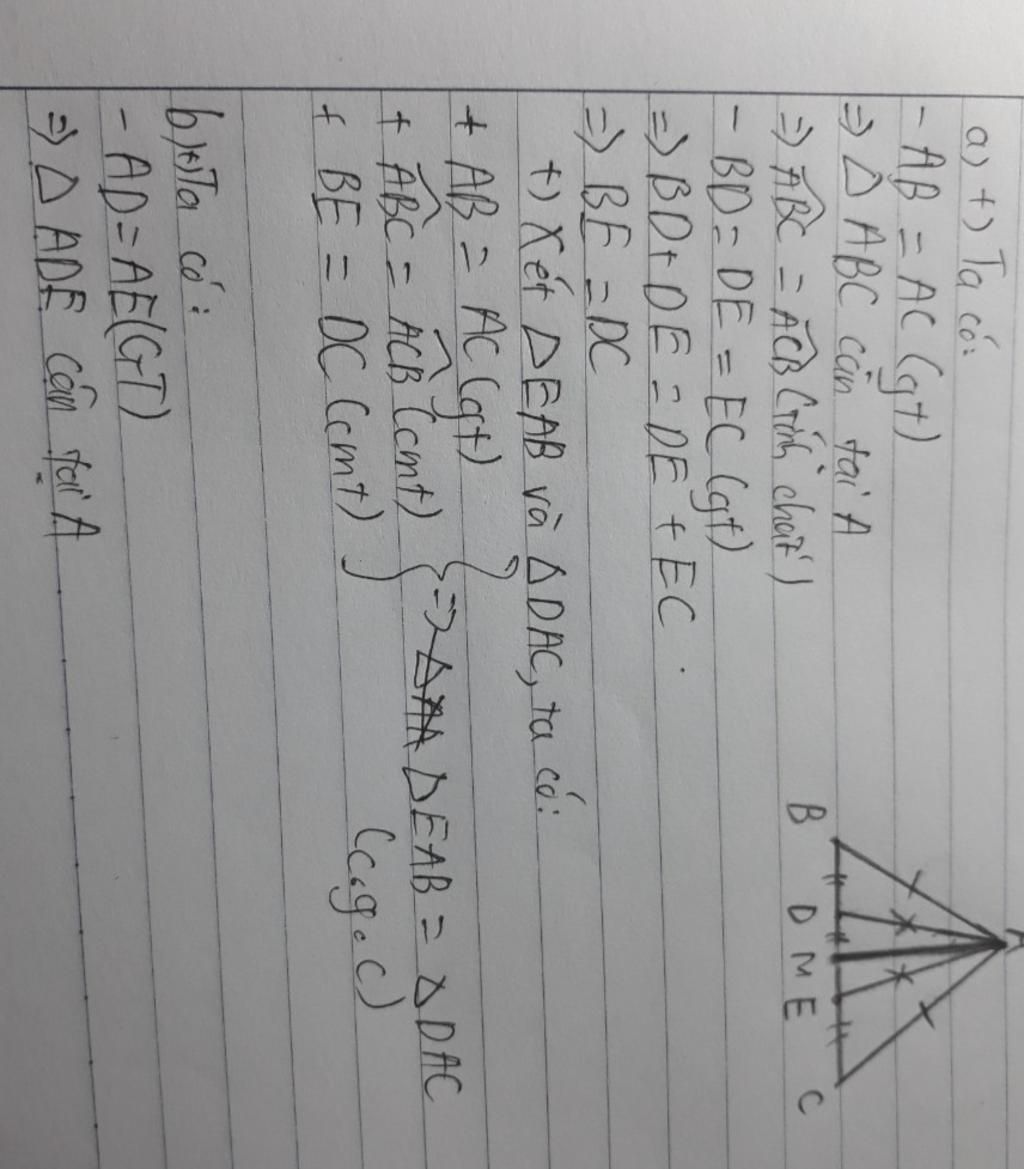 a) +) Ta có:
- AB = AC (gt)
=> Δ ABC cân tại A
=> ABC = ACB (tính chất)
- BD = DE = EC (gt)
=> BD + DE = DE + EC.
=> BE = DC
+) Xét Δ EAB và Δ DAC, ta có:
+ AB = AC (gt)
+ ABC = ACB (cmt)
+ BE = DC (cmt)
=> Δ EAB = Δ DAC
(c.g.c)
b) +) Ta có:
- AD = AE (GT)
=> Δ ADE cân tại A
A
B D M E C